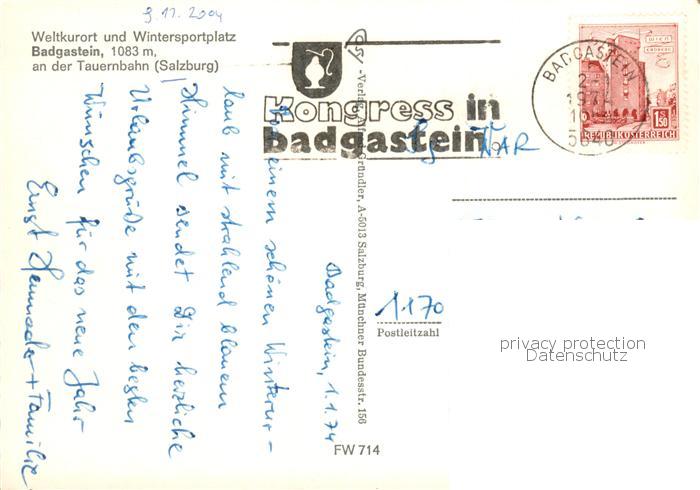 9.11.2004
Weltkurort und Wintersportplatz
Badgastein, 1083 m,
an der Tauernbahn (Salzburg)
Kongress in
badgastein
BADGASTEIN
5640
WIEN
ERDBERG
1S50
REPUBLIK ÖSTERREICH
Badgastein, 1.1.74
einem schönen Winterur-
laub mit strahlend blauem
Himmel sendet Dir herzliche
Urlaubsgrüße mit den besten
Wünschen für das neue Jahr
Ernst + Familie
-Verlag Alfred Gründler, A-5013 Salzburg, Münchner Bundesstr. 156
NAR
1170
Postleitzahl
FW 714
privacy protection
Datenschutz